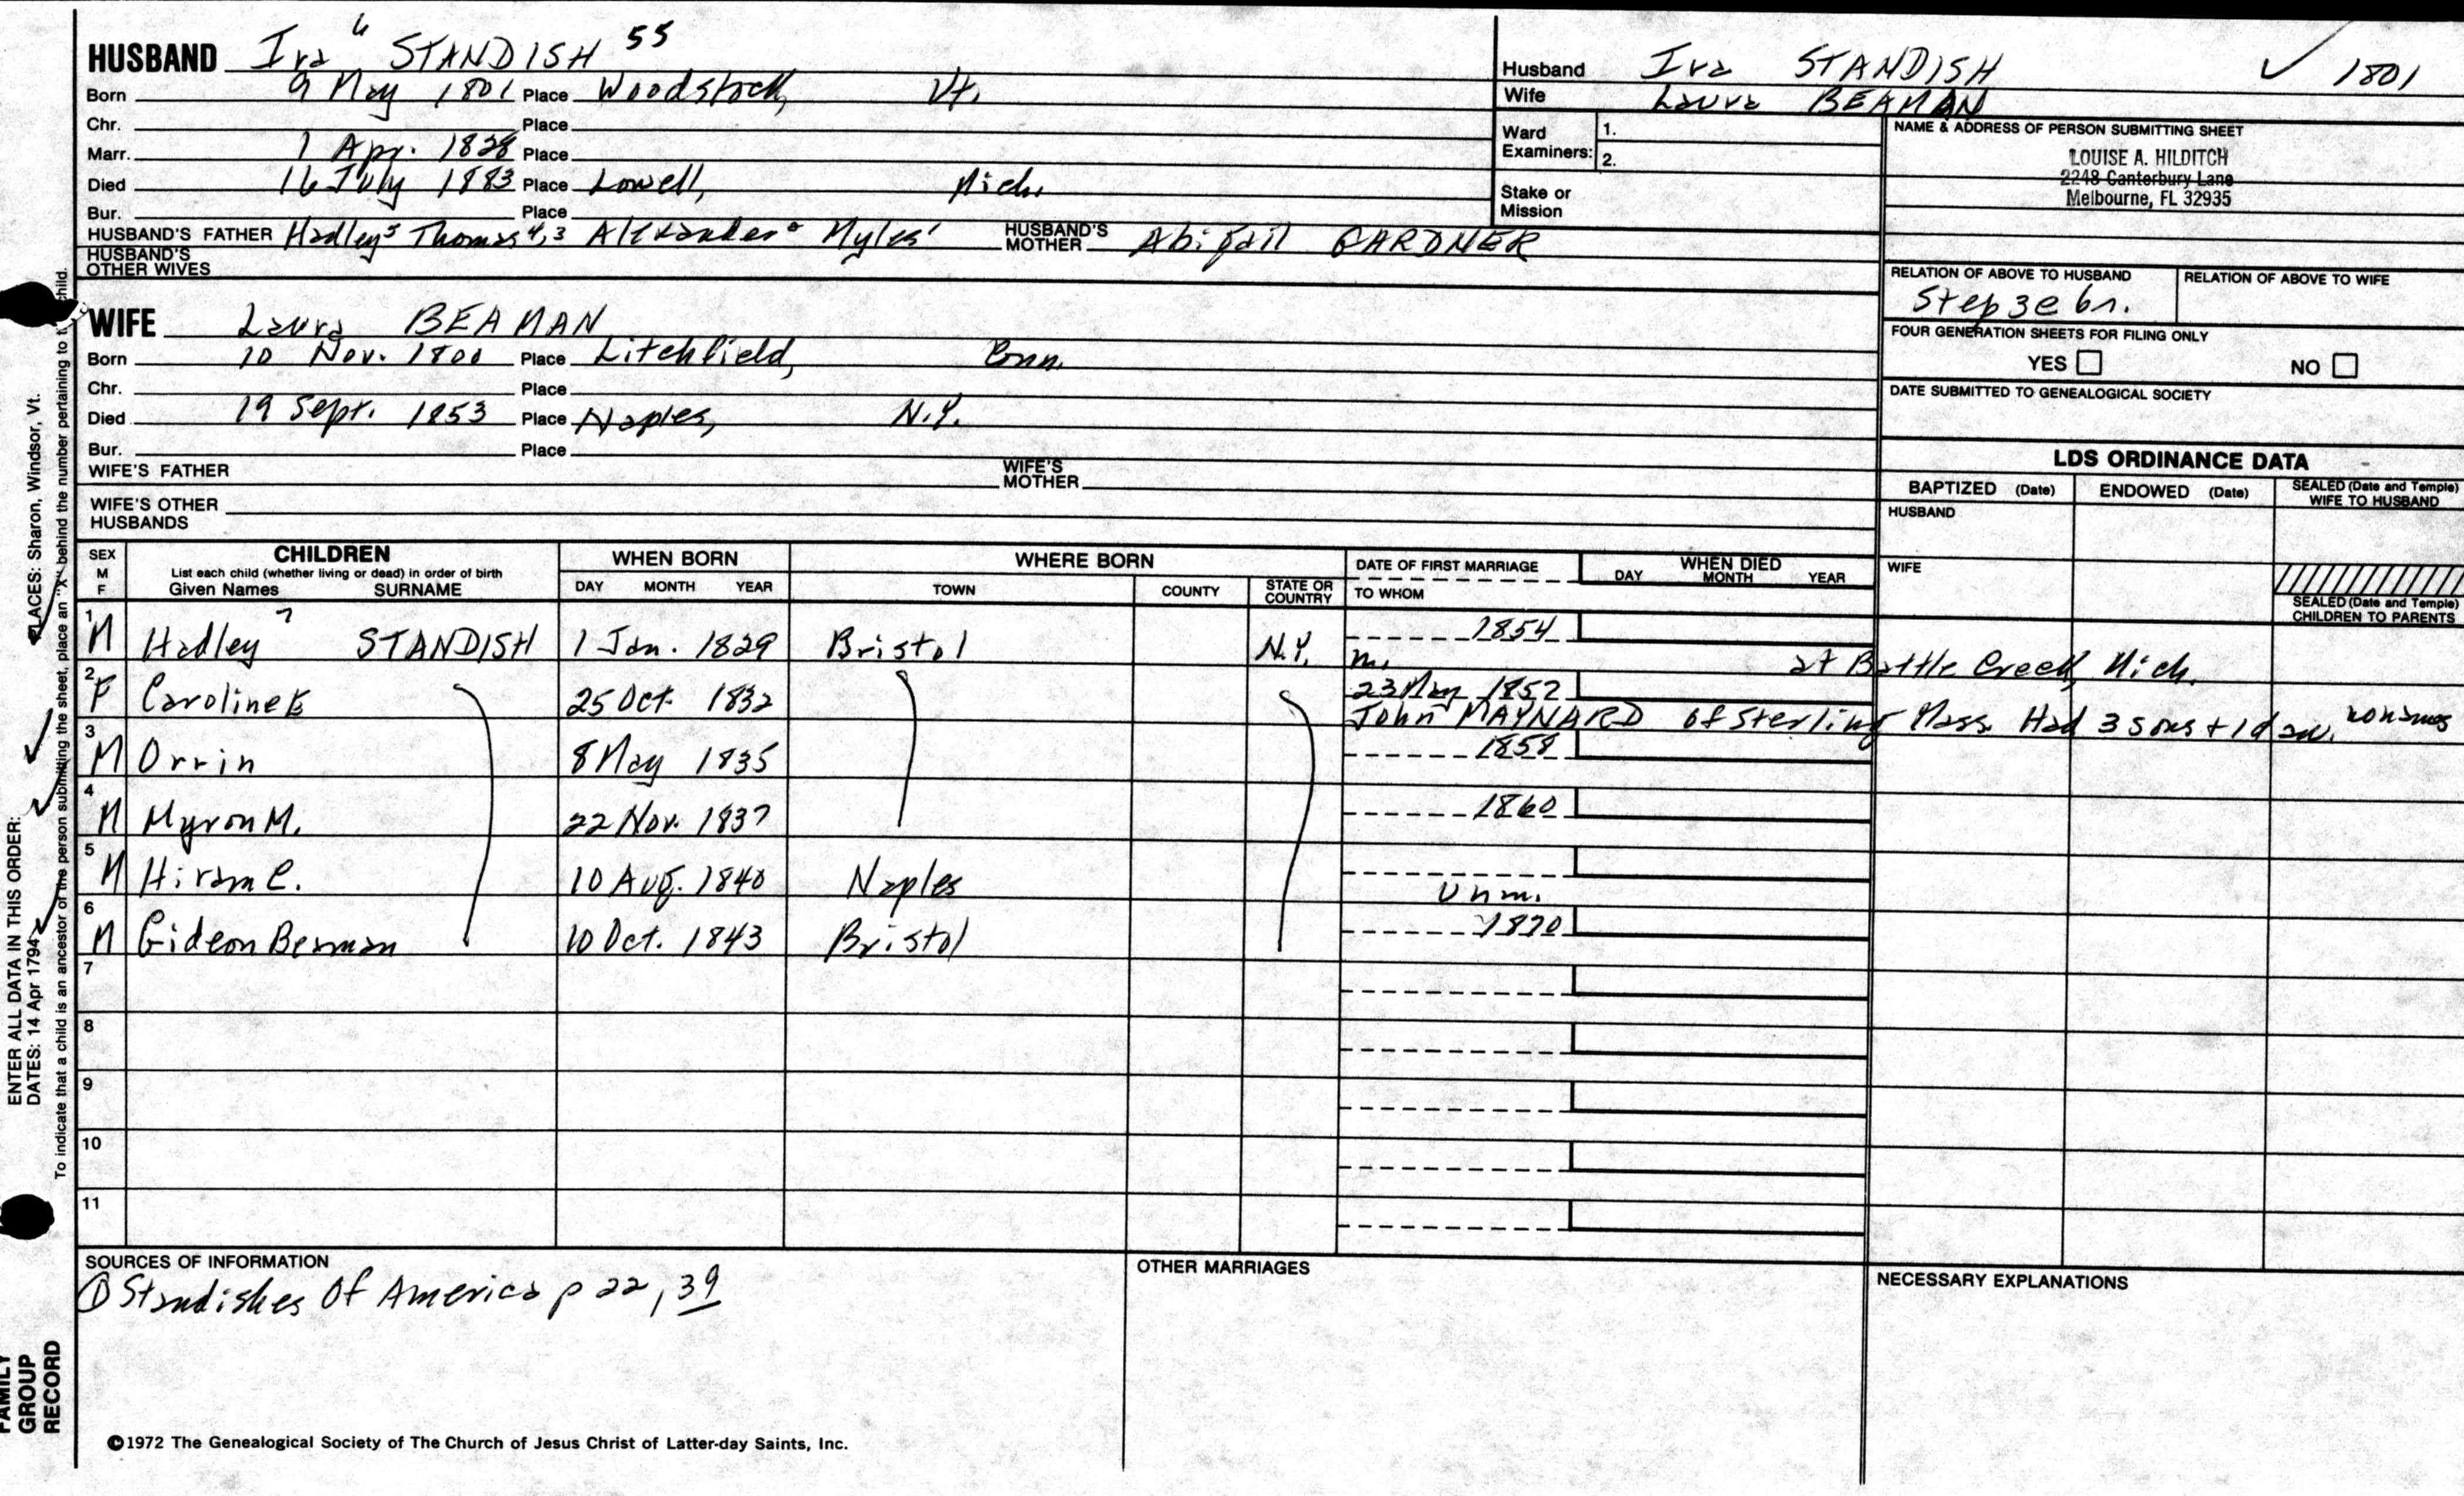 HUSBAND Ira 6 STANDISH 55
Born 9 May 1801 Place Woodstock, Vt.
Chr. Place
Marr. 1 Apr. 1828 Place
Died 16 July 1883 Place Lowell, Mich.
Bur. Place
HUSBAND'S FATHER Hadley5 Thomas4,3 Alexander2 Myles1 HUSBAND'S MOTHER Abigail GARDNER
HUSBAND'S OTHER WIVES
Husband Ira STANDISH ✓ 1801
Wife Laura BEAMAN
Ward Examiners: 1.
2.
Stake or Mission
NAME & ADDRESS OF PERSON SUBMITTING SHEET
LOUISE A. HILDITCH
2248 Canterbury Lane
Melbourne, FL 32935
RELATION OF ABOVE TO HUSBAND RELATION OF ABOVE TO WIFE
Step 3c 6r.
FOUR GENERATION SHEETS FOR FILING ONLY
YES NO
DATE SUBMITTED TO GENEALOGICAL SOCIETY
WIFE Laura BEAMAN
Born 10 Nov. 1800 Place Litchfield, Conn.
Chr. Place
Died 19 Sept. 1853 Place Naples, N.Y.
Bur. Place
WIFE'S FATHER WIFE'S MOTHER
WIFE'S OTHER HUSBANDS
LDS ORDINANCE DATA
BAPTIZED (Date) ENDOWED (Date) SEALED (Date and Temple) WIFE TO HUSBAND
HUSBAND
WIFE
SEALED (Date and Temple) CHILDREN TO PARENTS
SEX M F CHILDREN List each child (whether living or dead) in order of birth Given Names SURNAME
WHEN BORN DAY MONTH YEAR
WHERE BORN TOWN COUNTY STATE OR COUNTRY
DATE OF FIRST MARRIAGE TO WHOM
WHEN DIED DAY MONTH YEAR
1 M Hadley 7 STANDISH 1 Jan. 1829 Bristol N.Y. 1854
m. at Battle Creek, Mich.
2 F Caroline E 25 Oct. 1832 23 May 1852
John MAYNARD of Sterling Mass. Had 3 sons + 1 dau. no names
3 M Orrin 8 May 1835 1858
4 M Myron M. 22 Nov. 1837 1860
5 M Hiram C. 10 Aug. 1840 Naples
Unm.
6 M Gideon Beaman 10 Oct. 1843 Bristol 1870
7
8
9
10
11
SOURCES OF INFORMATION
① Standishes Of America p 22, 39
OTHER MARRIAGES
NECESSARY EXPLANATIONS
©1972 The Genealogical Society of The Church of Jesus Christ of Latter-day Saints, Inc.
ENTER ALL DATA IN THIS ORDER:
DATES: 14 Apr 1794 PLACES: Sharon, Windsor, Vt.
To indicate that a child is an ancestor of the person submitting the sheet, place an "X" behind the number pertaining to child.
FAMILY GROUP RECORD